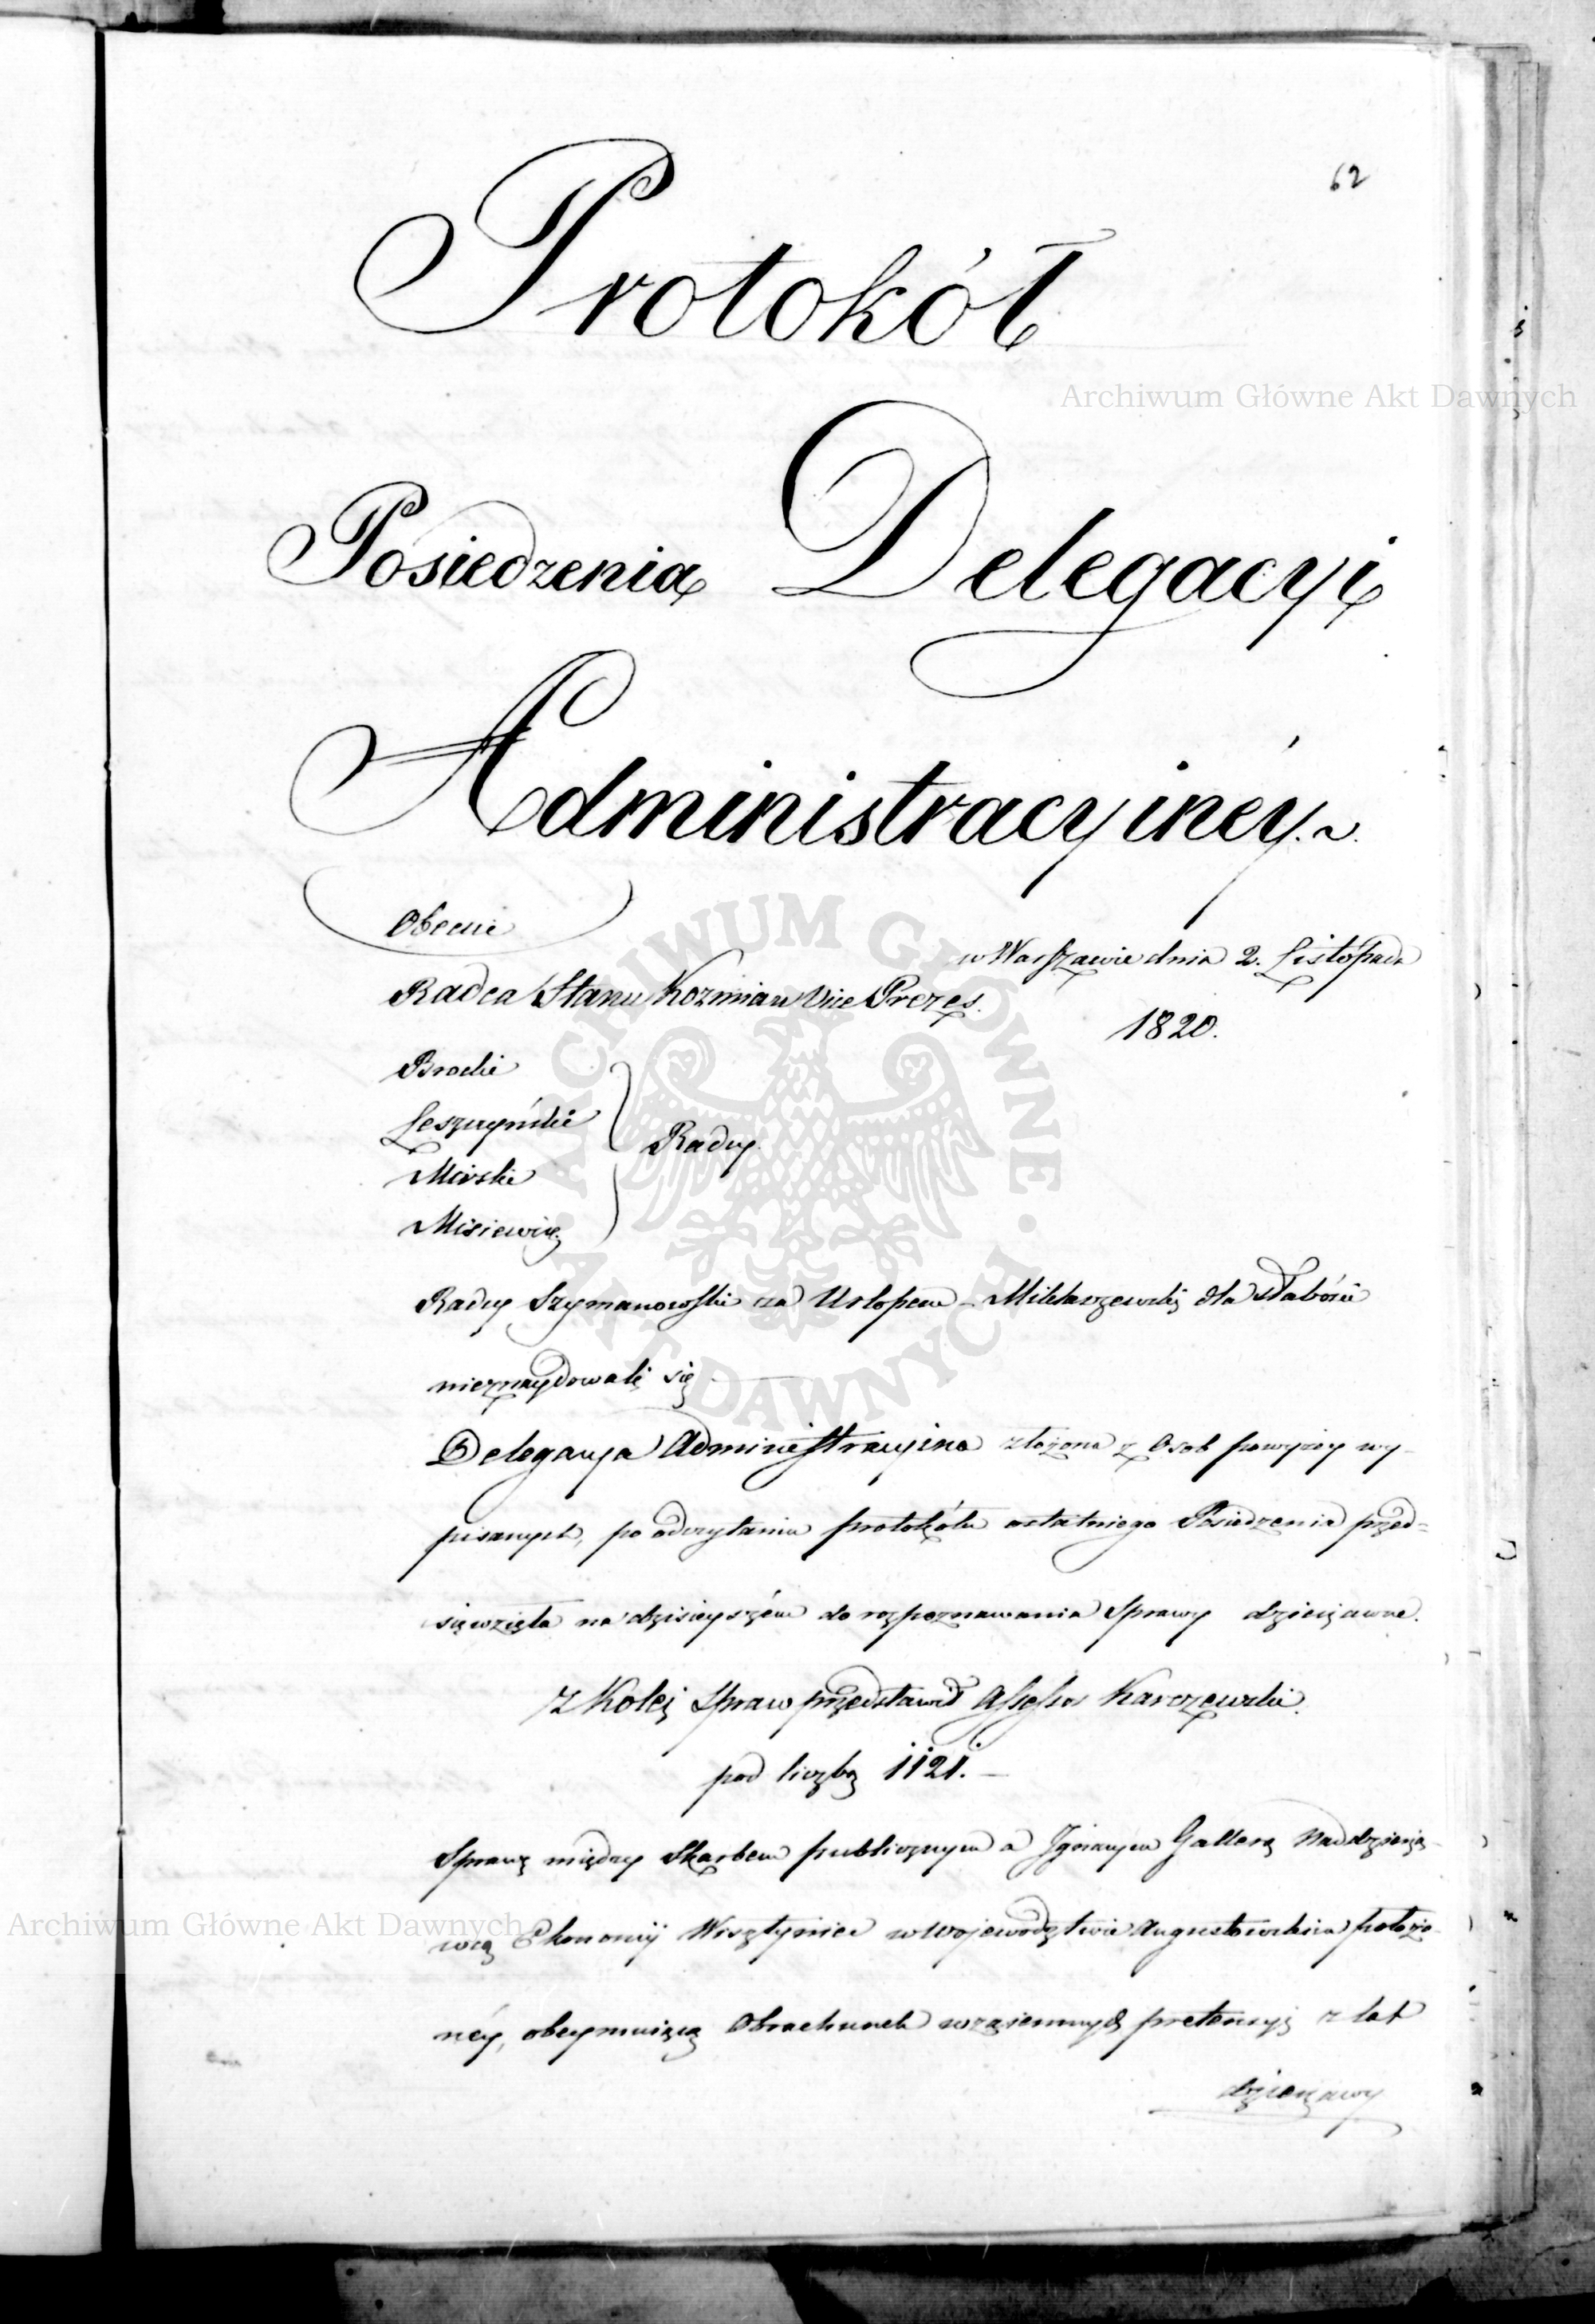 62
Protokół
Posiedzenia Delegacyi
Administracyiney.
Obecni
w Warszawie dnia 2. Listopada
1820.
Radca Stanu Kozmian Vice Prezes.
Brocki
Leszczyński
Mirski
Misiewicz
Radcy.
Radcy Szymanowski za Urlopem – Mileszewski dla słabości
nieznaydowali się
Delegacya Administracyina złożona z Osob powyżey wy-
pisanych, po odczytaniu protokółu ostatniego Posiedzenia przed=
sięwzięła na dzisieyszém do rozpoznawania Sprawy dzierżawne.
Z Kolei Spraw przedstawił Assessor Karczewski.
pod liczbą 1121. –
Sprawę między Skarbem publicznym a Gallerą Naddzierża-
wcą Ekonomij Wisztyniec w Województwie Augustowskim położo-
néy, obeymuiącą Obrachunek wzaiemnych pretensyi z lat
dzierżawy
Archiwum Główne Akt Dawnych
ARCHIWUM GŁÓWNE · AKT DAWNYCH ·
Archiwum Główne Akt Dawnych